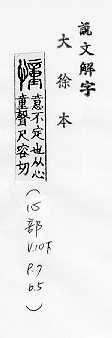 說文解字
大徐本
憧
意不定也从心
童聲尺容切
(心部 V.10下 P.7 b.5)